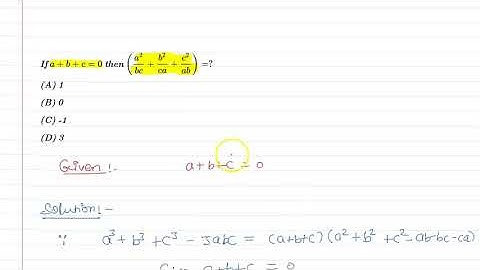 If a + b + c = 0 then (a²/bc + b²/ca + c²/ab) =?
(A) 1
(B) 0
(C) -1
(D) 3
Given :- a+b+c = 0
Solution :-
∵ a³ + b³ + c³ - 3abc = (a+b+c) (a² + b² + c² - ab - bc - ca)
a+b+c = 0